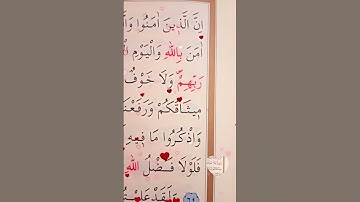 إِنَّ الَّذِينَ اٰمَنُوا
اٰمَنَ بِاللّٰهِ وَالْيَوْمِ
رَبِّهِمْ وَلَا خَوْفٌ
مِيثَاقَكُمْ وَرَفَعْنَا
وَاذْكُرُوا مَا فِيهِ
فَلَوْلَا فَضْلُ اللّٰهِ
وَلَقَدْ